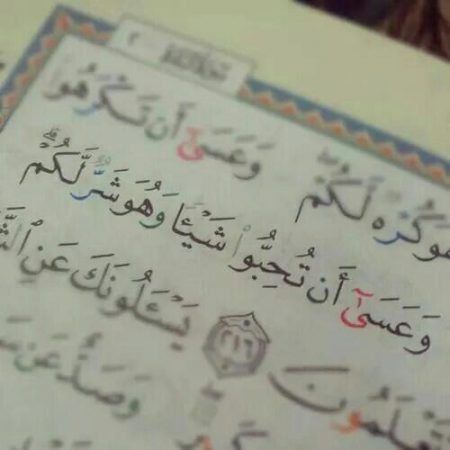 ٢
هُوَ كُرْهٌ لَّكُمْ ۖ وَعَسَىٰٓ أَن تَكْرَهُوا
وَعَسَىٰٓ أَن تُحِبُّوا۟ شَيْـًٔا وَهُوَ شَرٌّ لَّكُمْ ۗ
تَعْلَمُونَ ٢١٦ يَسْـَٔلُونَكَ عَنِ ٱلشَّ
وَصَدٌّ عَن